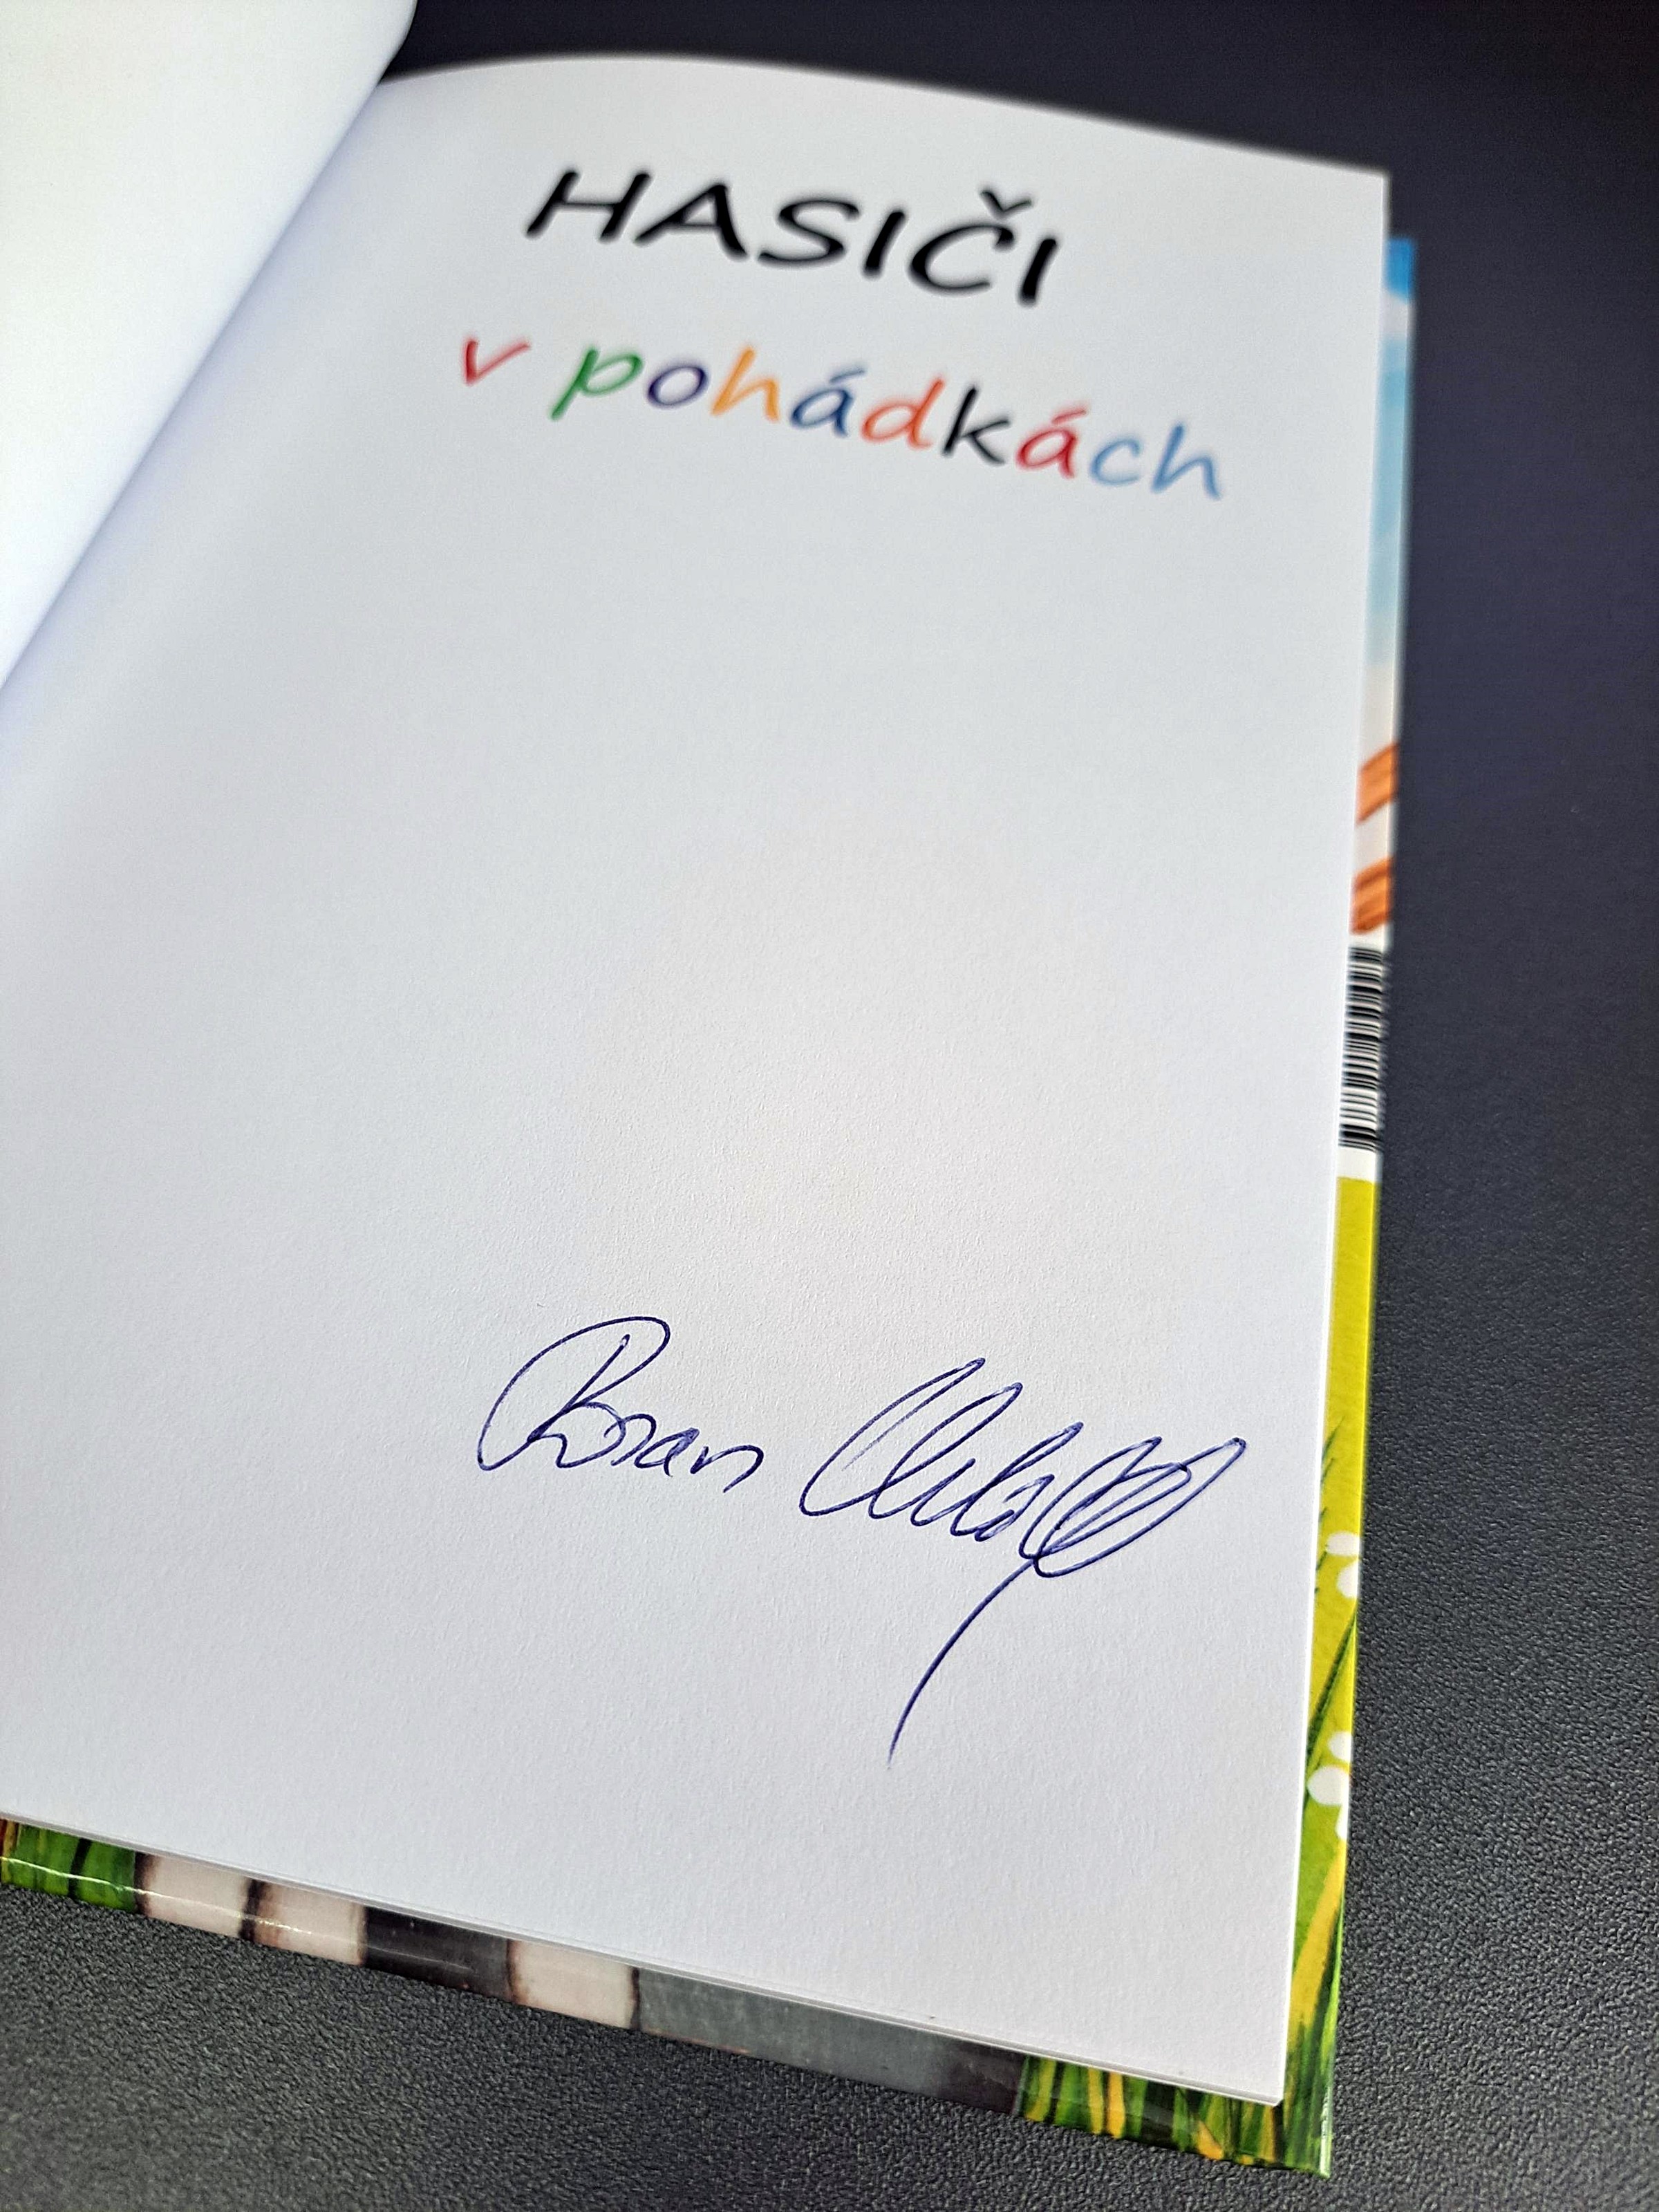 HASIČI
v pohádkách